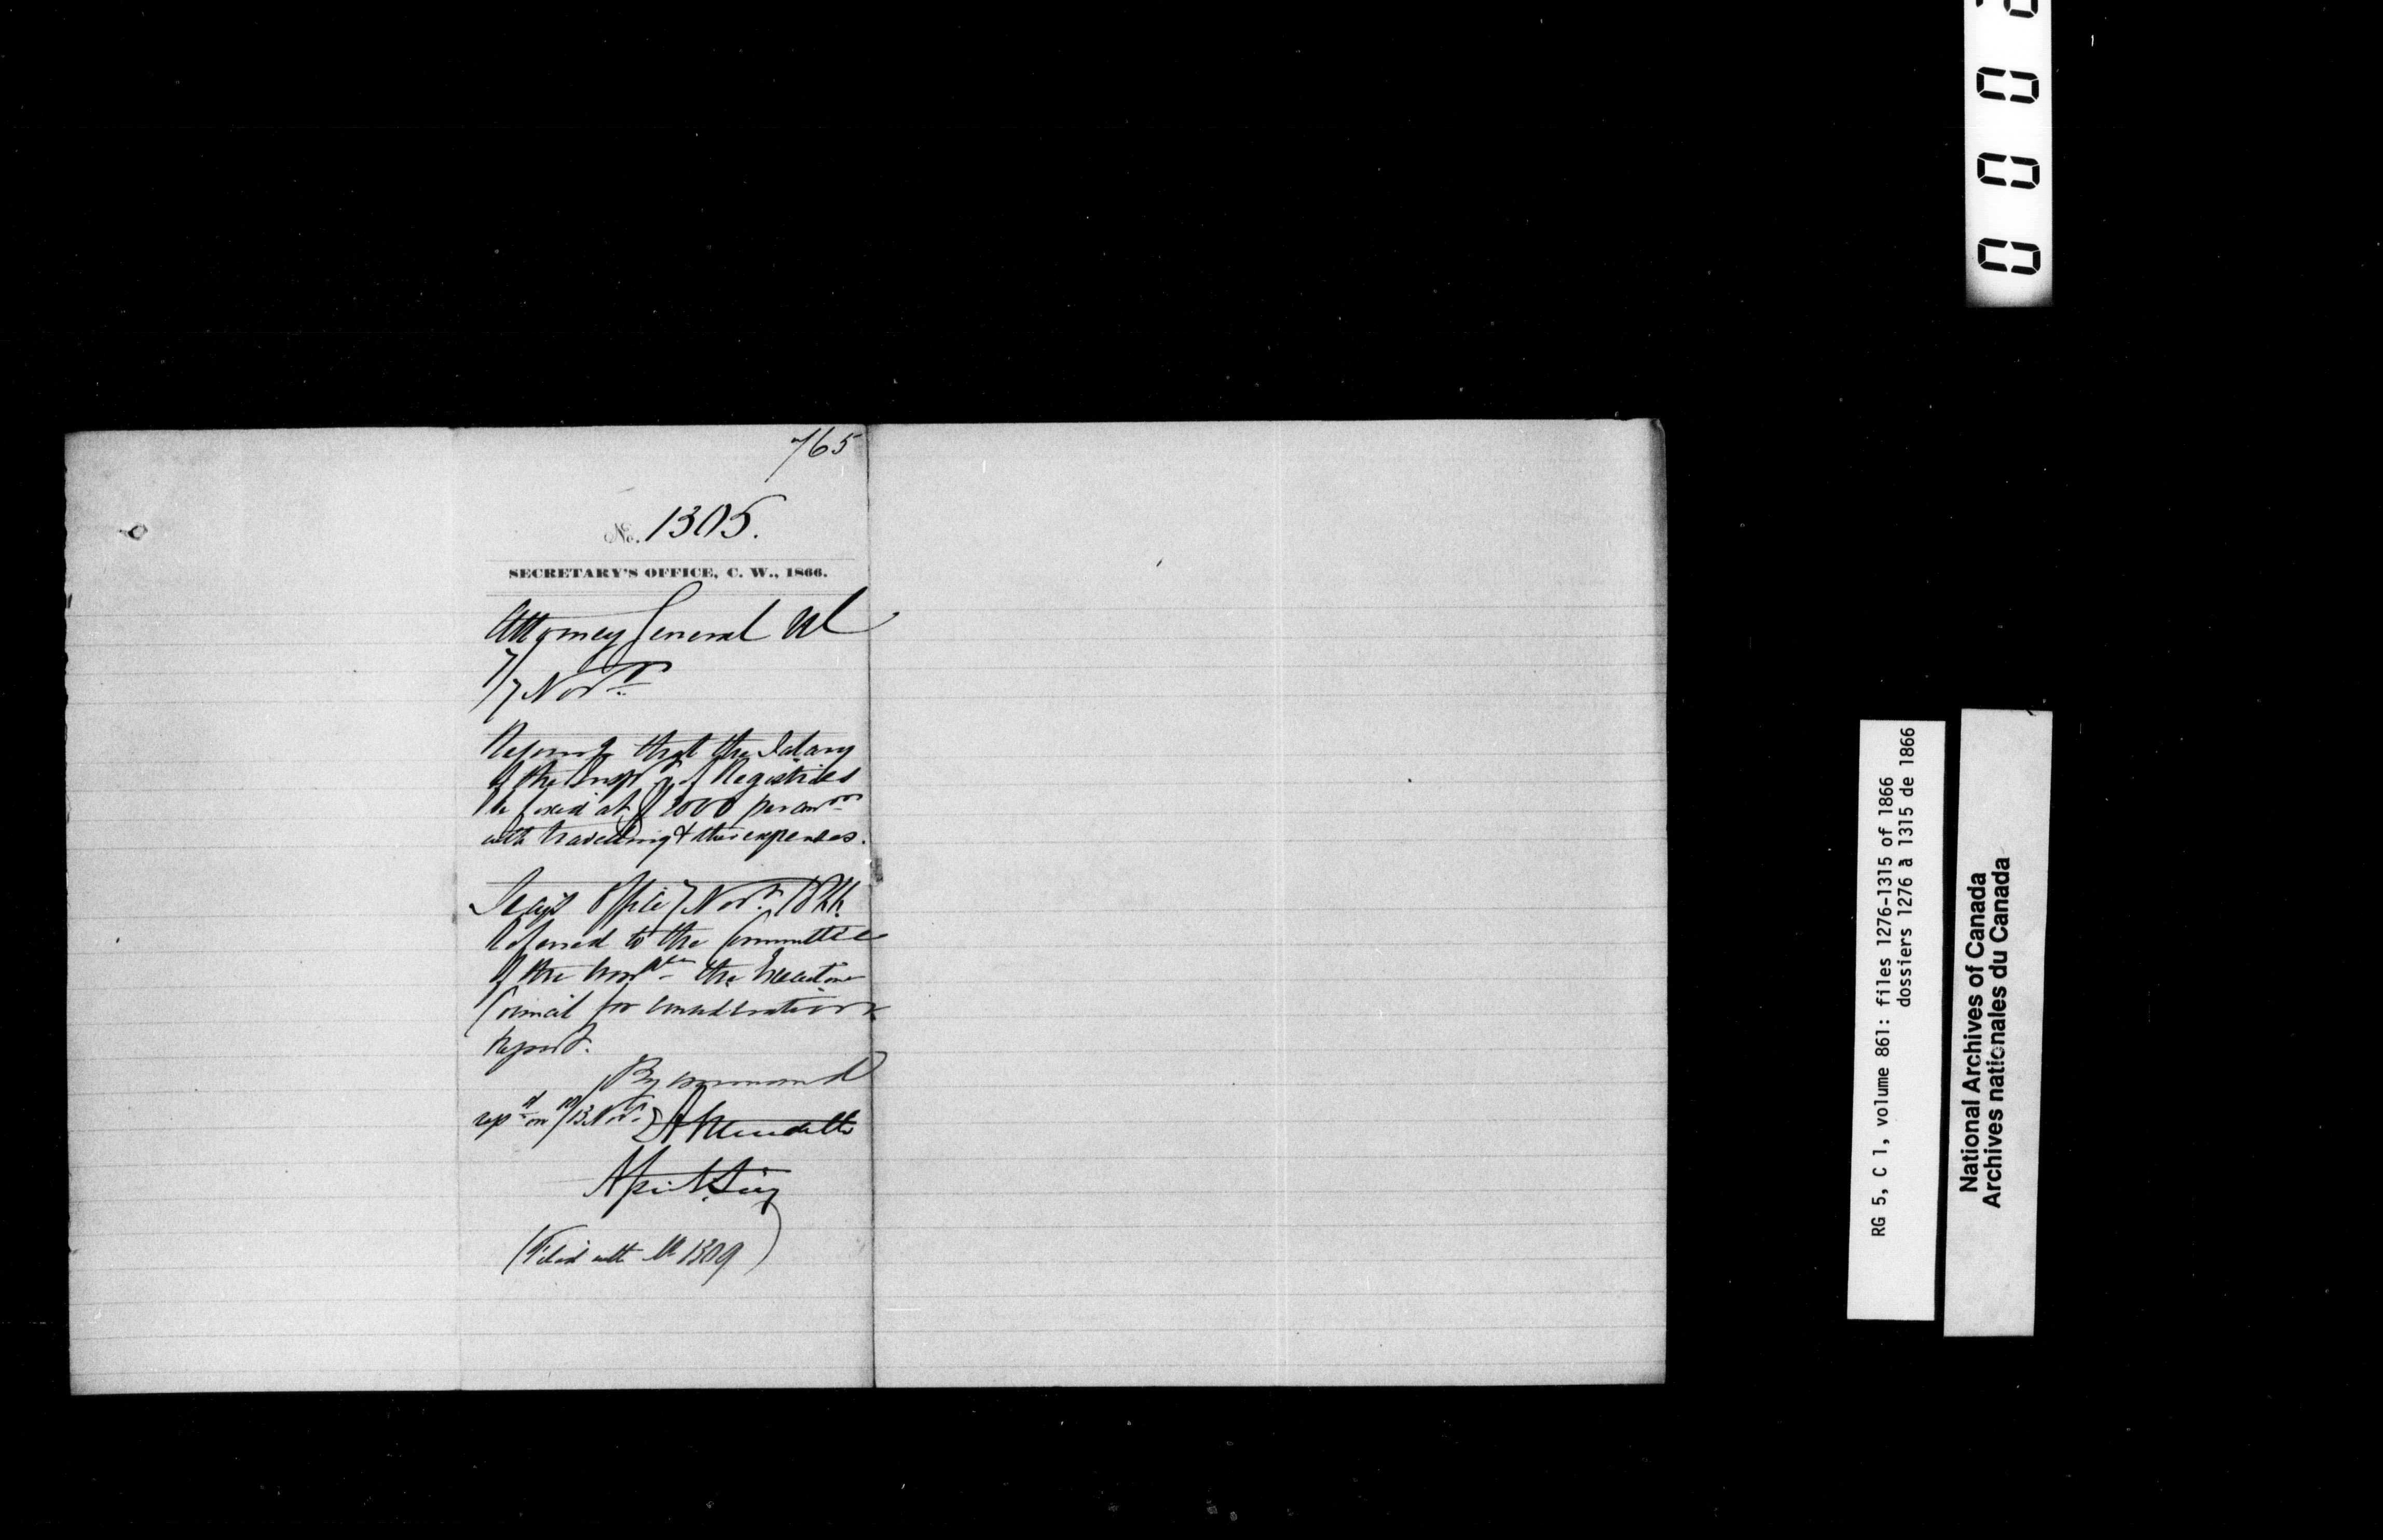 765
No. 1305.
SECRETARY'S OFFICE, C. W., 1866.
Attorney General
7 Novr
that the Salary
of the Inspr of Registries
be fixed at $2000 per ann
with travelling & other expenses.
Secy's Office 7 Novr. 1866
Referred to the Committee
of the the Executive
Council for consideration &
Report.
By command
repd on 13 Novr.
(Filed with No 1309)
0 0 0
RG 5, C 1, volume 861: files 1276-1315 of 1866
dossiers 1276 à 1315 de 1866
National Archives of Canada
Archives nationales du Canada